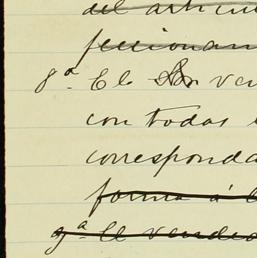 del artícu
feccionan
8ª. El
con todas
corresponda
forma á l
9ª El vended